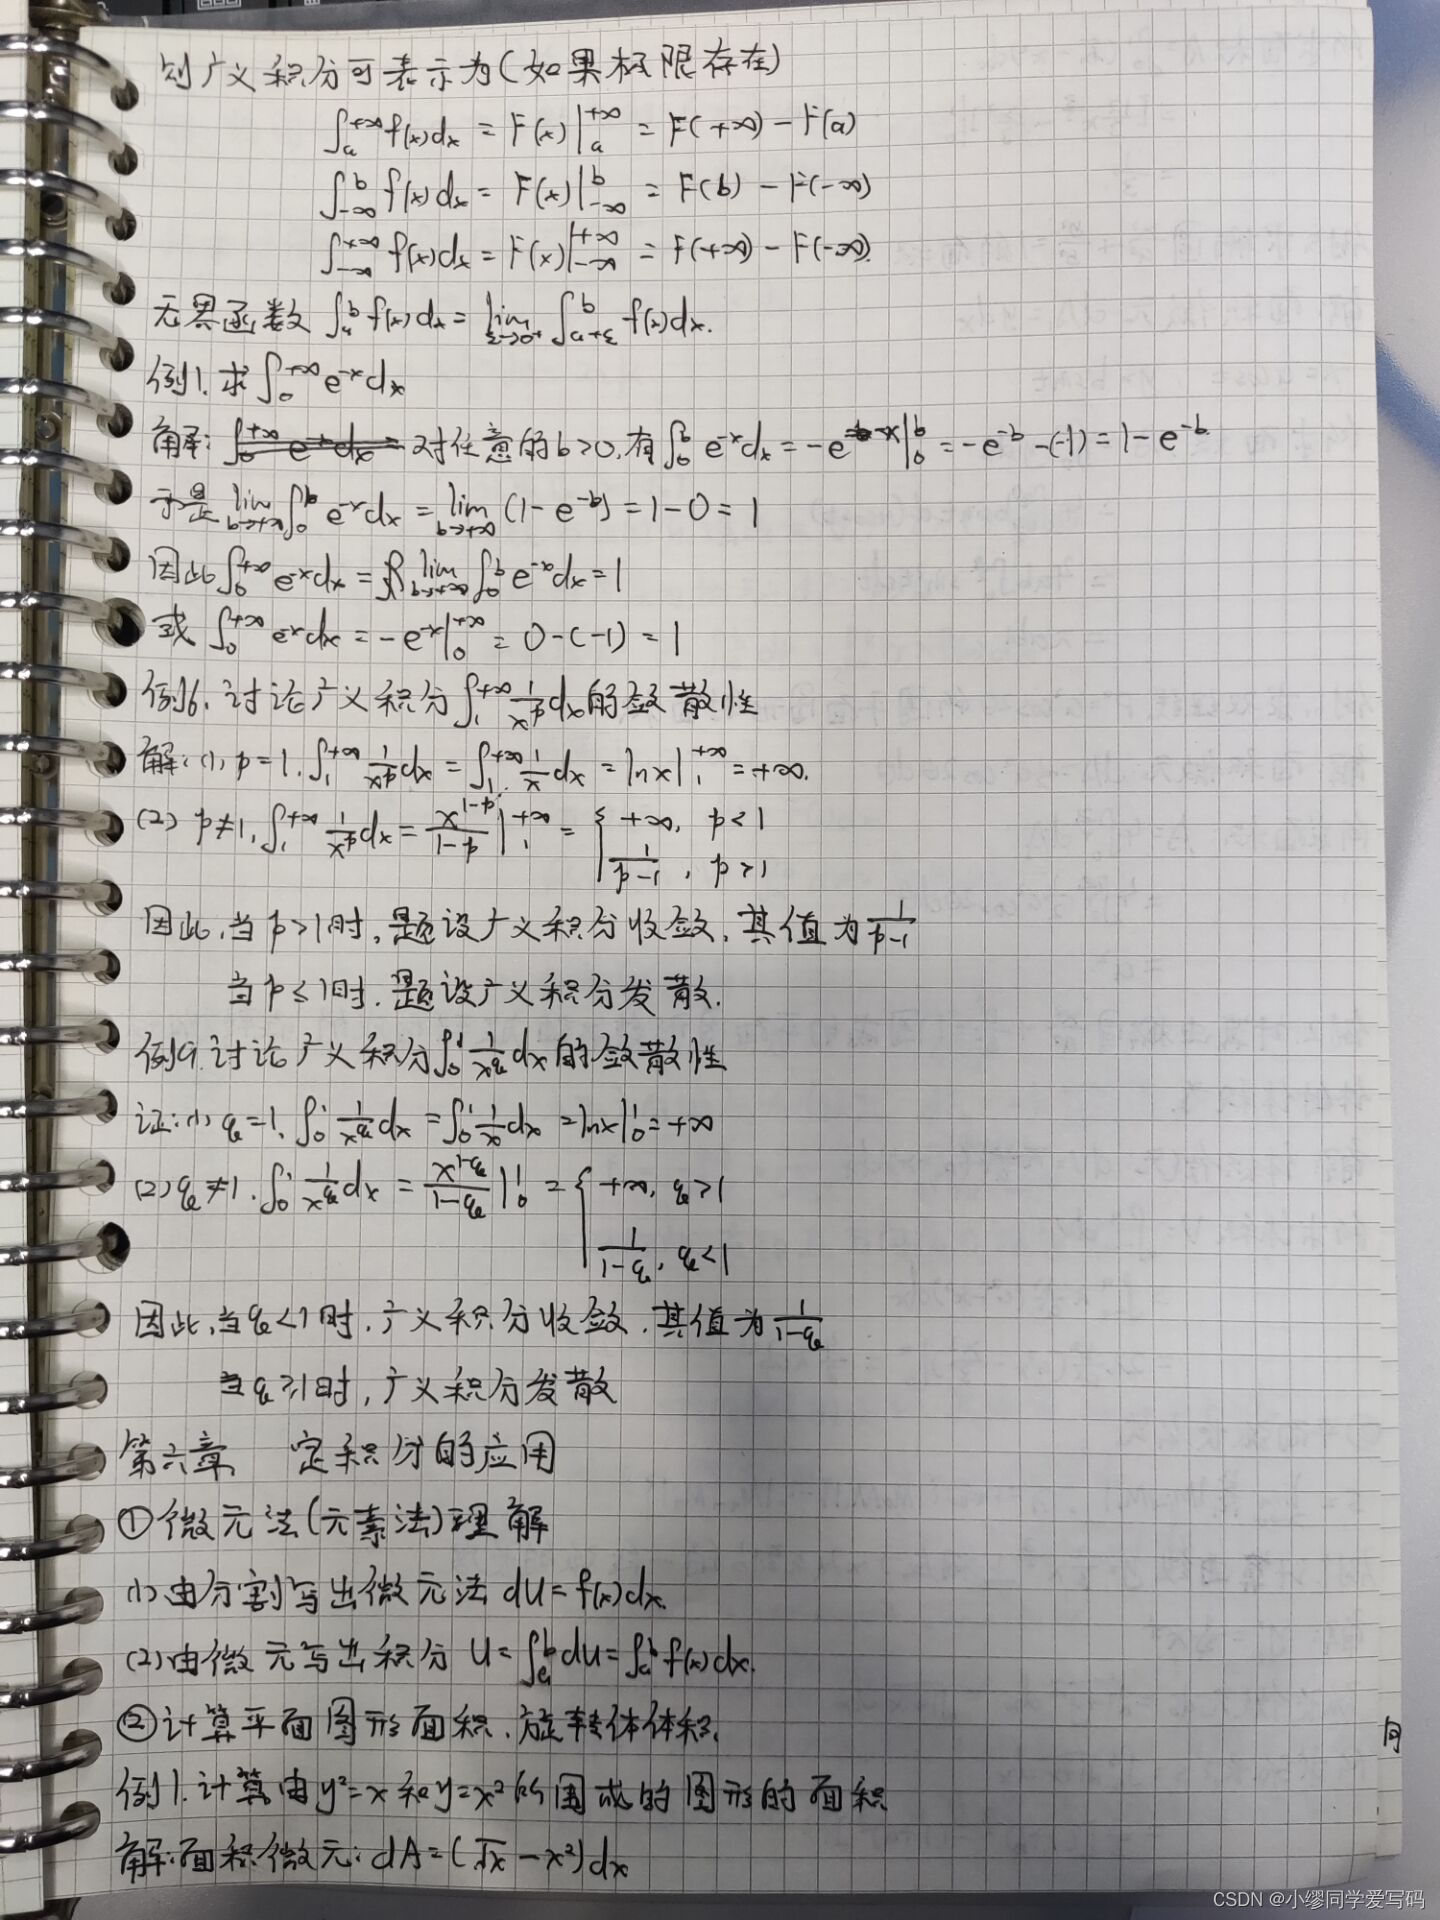 则广义积分可表示为(如果极限存在)
∫_a^{+∞} f(x)dx = F(x)|_a^{+∞} = F(+∞) - F(a)
∫_{-∞}^b f(x)dx = F(x)|_{-∞}^b = F(b) - F(-∞)
∫_{-∞}^{+∞} f(x)dx = F(x)|_{-∞}^{+∞} = F(+∞) - F(-∞).
无界函数 ∫_a^b f(x)dx = lim_{ε→0+} ∫_{a+ε}^b f(x)dx.
例1.求∫_0^{+∞} e^{-x}dx
解: 对任意的b>0,有∫_0^b e^{-x}dx = -e^{-x}|_0^b = -e^{-b} -(-1) = 1-e^{-b}
于是 lim_{b→+∞} ∫_0^b e^{-x}dx = lim_{b→+∞} (1-e^{-b}) = 1-0 = 1
因此∫_0^{+∞} e^{-x}dx = lim_{b→+∞} ∫_0^b e^{-x}dx = 1
或 ∫_0^{+∞} e^{-x}dx = -e^{-x}|_0^{+∞} = 0-(-1) = 1
例6.讨论广义积分∫_1^{+∞} 1/x^p dx的敛散性
解:(1) p=1.∫_1^{+∞} 1/x^p dx = ∫_1^{+∞} 1/x dx = lnx|_1^{+∞} = +∞.
(2) p≠1,∫_1^{+∞} 1/x^p dx = x^{1-p}/(1-p)|_1^{+∞} = { +∞, p<1
1/(p-1), p>1
因此,当p>1时,题设广义积分收敛,其值为1/(p-1)
当p≤1时,题设广义积分发散.
例9.讨论广义积分∫_0^1 1/x^q dx的敛散性
证:(1) q=1,∫_0^1 1/x^q dx = ∫_0^1 1/x dx = lnx|_0^1 = +∞
(2) q≠1.∫_0^1 1/x^q dx = x^{1-q}/(1-q)|_0^1 = { +∞, q>1
1/(1-q), q<1
因此,当q<1时,广义积分收敛,其值为1/(1-q)
当q≥1时,广义积分发散
第六章 定积分的应用
①微元法(元素法)理解
(1)由分割写出微元法 dU=f(x)dx.
(2)由微元写出积分 U=∫_a^b dU=∫_a^b f(x)dx.
②计算平面图形面积,旋转体体积.
例1.计算由y²=x和y=x²所围成的图形的面积
解:面积微元: dA=(√x-x²)dx
CSDN @小缪同学爱写码